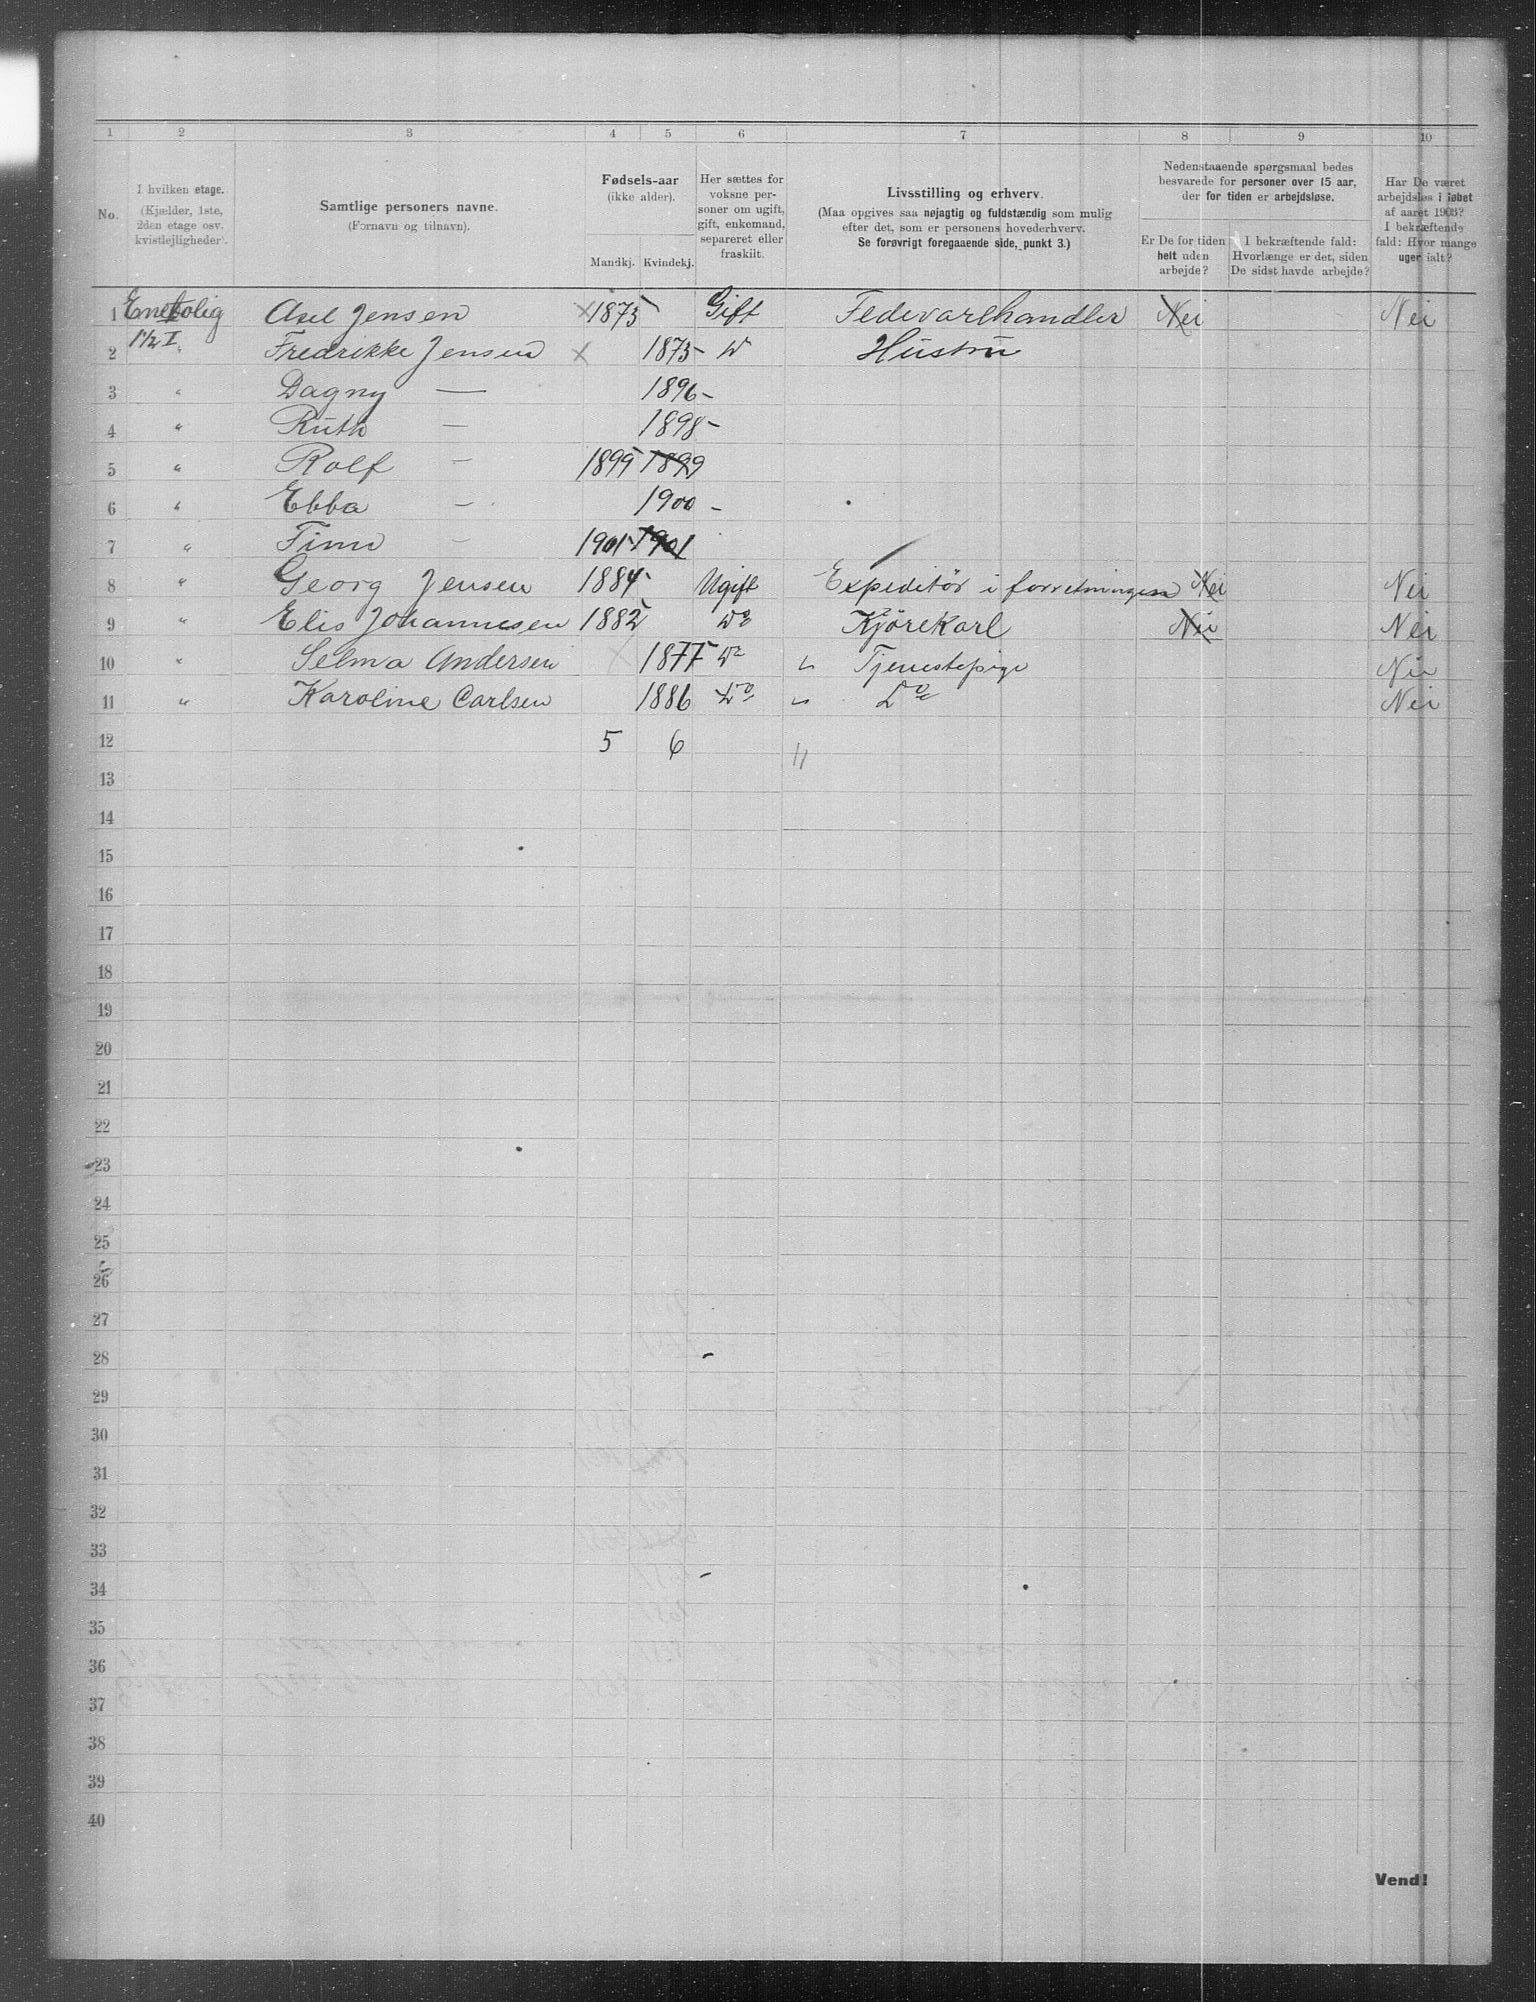 1 2 3 4 5 6 7 8 9 10
No.
I hvilken etage.
(Kjælder, 1ste,
2den etage osv.
kvistlejligheder).
Samtlige personers navne.
(Fornavn og tilnavn).
Fødsels-aar
(ikke alder).
Mandkj. Kvindekj.
Her sættes for
voksne per-
soner om ugift,
gift, enkemand,
separeret eller
fraskilt.
Livsstilling og erhverv.
(Maa opgives saa nøjagtig og fuldstændig som mulig
efter det, som er personens hovederhverv.
Se forøvrigt foregaaende side, punkt 3.)
Nedenstaaende spørgsmaal bedes
besvarede for personer over 15 aar,
der for tiden er arbejdsløse.
Er De for tiden
helt uden
arbejde?
I bekræftende fald:
Hvorlænge er det, siden
De sidst havde arbejde?
Har De været
arbejdsløs i løbet
af aaret 1903?
I bekræftende
fald: Hvor mange
uger ialt?
1 Enebolig Axel Jensen × 1873 Gift Fedevarehandler Nei Nei
2 1½ I " Fredrikke Jensen × 1873 - D Hustru
3 " Dagny — 1896 -
4 " Ruth — 1898 -
5 " Rolf — 1899 1899
6 " Ebba — 1900 -
7 " Finn — 1901 - 1901
8 " Georg Jensen 1884 - Ugift Expeditör i forretningen Nei Nei
9 " Elis Johannesen 1882 Do Kjörekarl Nei Nei
10 " Selma Andersen × 1877 Do " Tjenestepige Nei
11 " Karoline Carlsen 1886 Do " Do Nei
12 5 6 11
13
14
15
16
17
18
19
20
21
22
23
24
25
26
27
28
29
30
31
32
33
34
35
36
37
38
39
40
Vend!